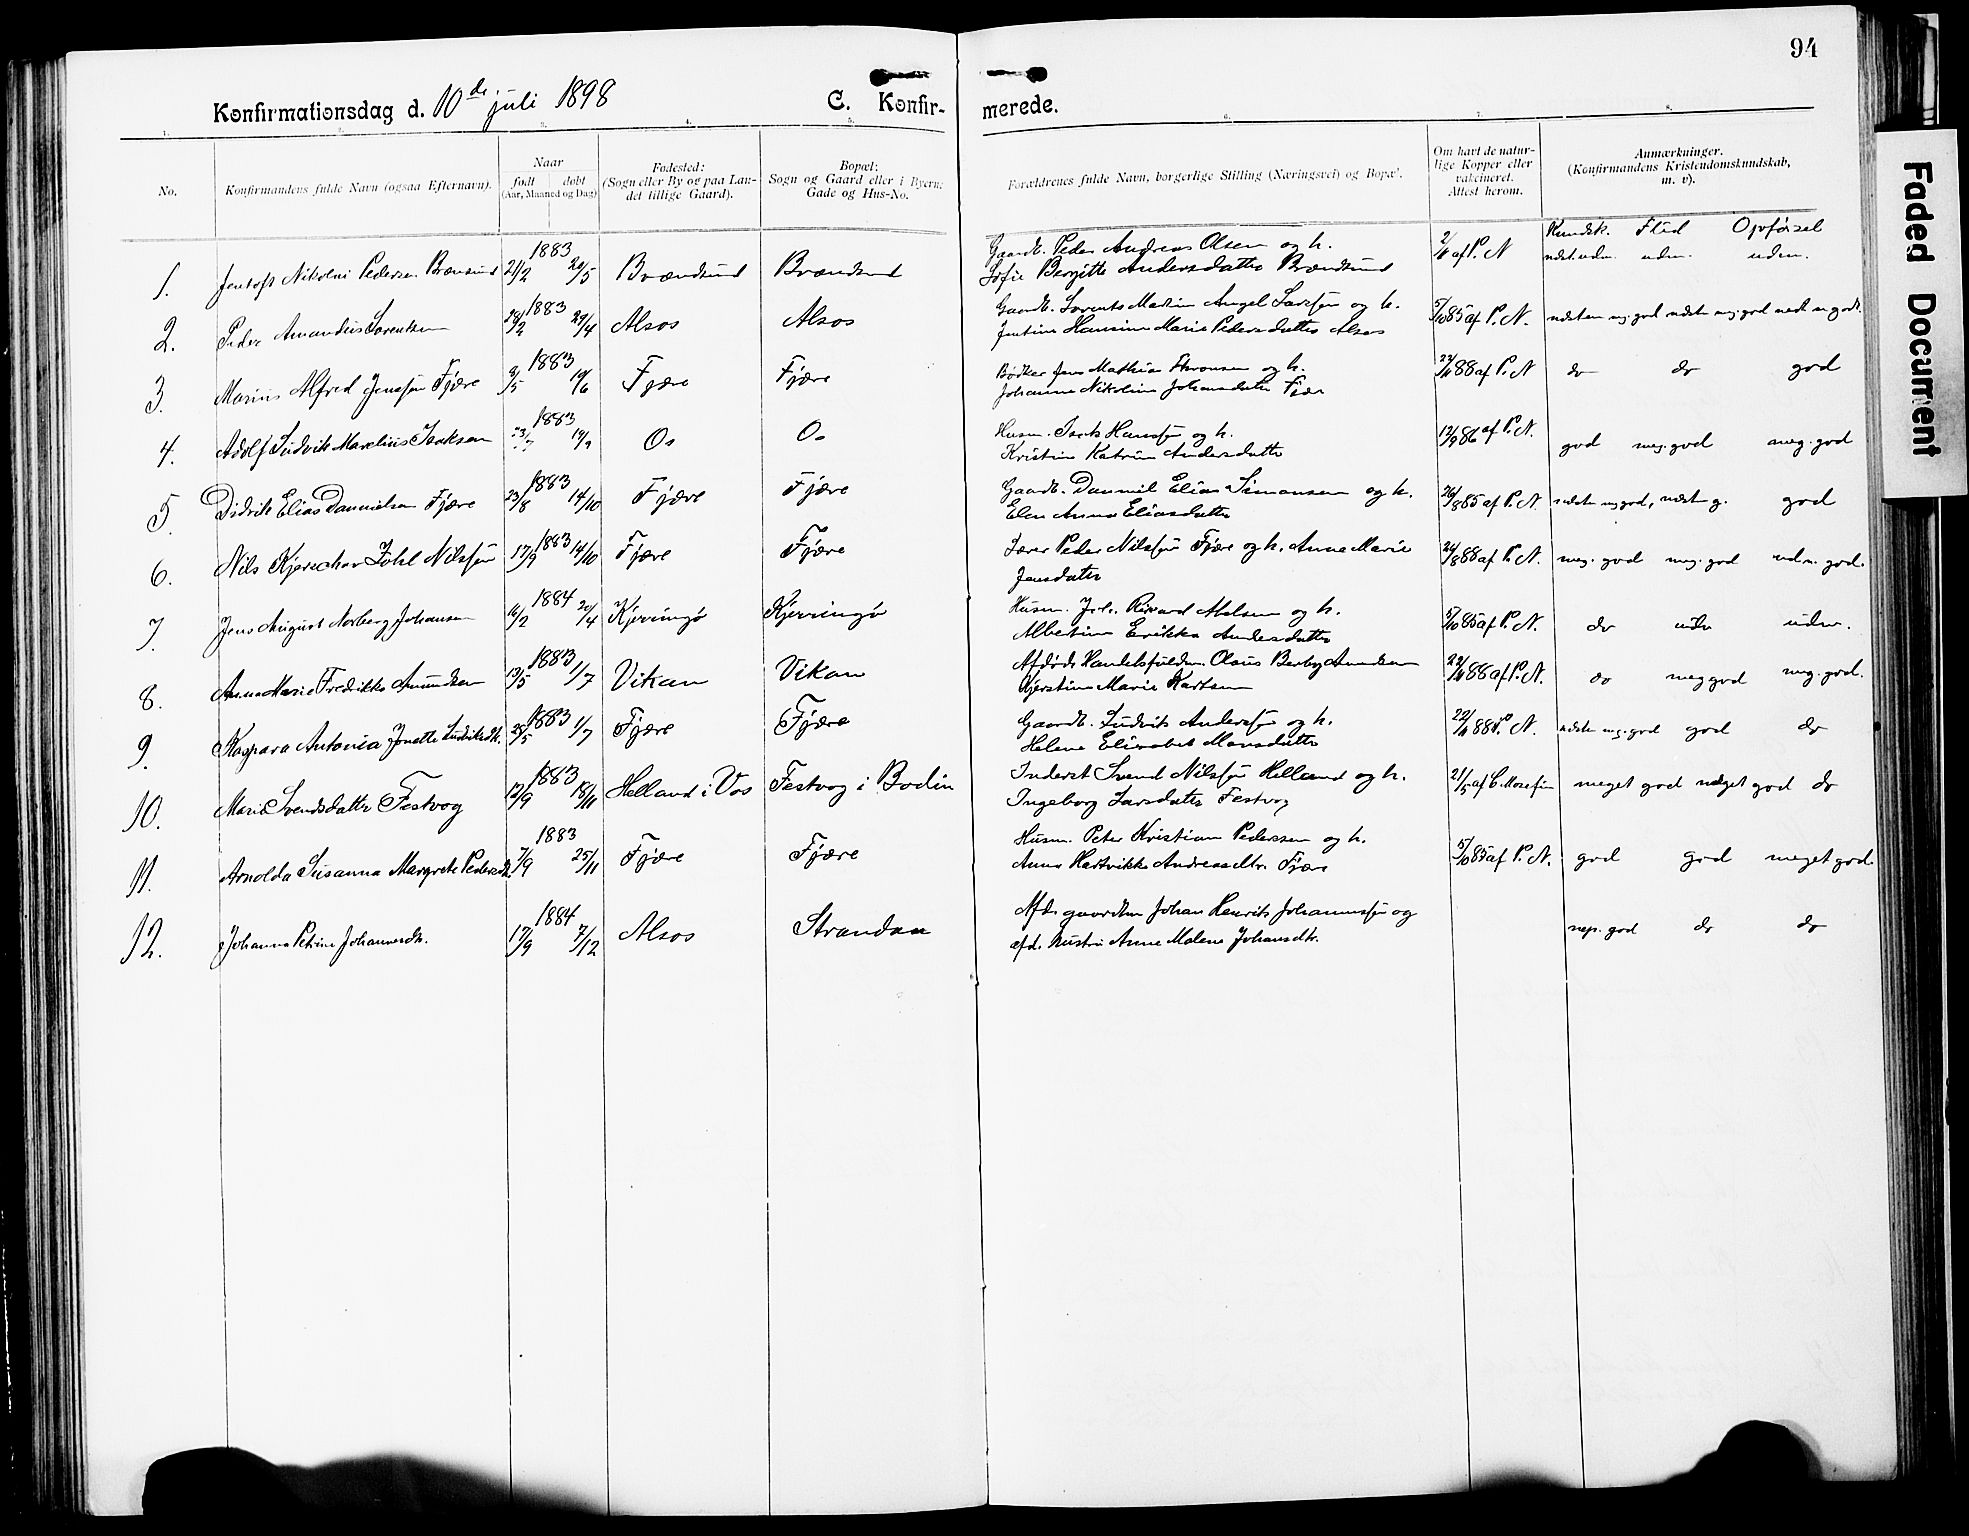 94
Konfirmationsdag d. 10de juli 1898
C. Konfirmerede.
Faded Document
1. 2. 3. 4. 5. 6. 7. 8.
No.
Konfirmandens fulde Navn (ogsaa Efternavn).
Naar født døbt (Aar, Maaned og Dag)
Fødested: (Sogn eller By og paa Landet tillige Gaard).
Bopæl: Sogn og Gaard eller i Byern: Gade og Hus-No.
Forældrenes fulde Navn, borgerlige Stilling (Næringsvei) og Bopæl.
Om havt de naturlige Kopper eller vakcineret. Attest herom.
Anmærkninger. (Konfirmandens Kristendomskundskab, m. v).
Kundsk. Flid Opførsel
1. Jentoft Nikolai Pedersen Brændsund 1883 21/2 20/5 Brændsund Brændsund
Gaardb. Peder Andreas Olsen og h.
Sofie Bergitte Andersdatter Brændsund
af P. N næst. udm. udm. udm.
2. Peder Amandus Sorentsen 1883 28/2 29/4 Alsos Alsos
Gaardb. Sorents Martin Angel Larssen og h.
Jentine Hansine Marie Pedersdatter Alsos
5/10 85 af P. N. næsten mg. god næst. mg. god næst m god.
3. Marius Alfred Jenssen Fjære 1883 3/5 10/6 Fjære Fjære
Bødker Jens Mathias Thronsen og h.
Johanne Nikoline Johansdatter Fjær
22/11 88 af P. N do do god
4. Adolf Ludvik Marelius Isaksen 1883 Os Os
Husm. Isak Hanssen og h.
Kristine Katrine Andersdatter
12/9 86 af P. N. god meg. god meg. god
5. Didrik Elias Danielsen Fjære 1883 23/8 14/10 Fjære Fjære
Gaardb. Daniel Elias Simonsen og h.
Elen Anna Eliasdatter
26/8 85 af P. N. næsten mg god, næsten g. god
6. Nils Kjerschow Zahl Nilssen 1883 17/9 14/10 Fjære Fjære
Lærer Peder Nilssen Fjære og h. Anne Marie
Jensdatter
24/8 88 af P. N. meg. god meg. god udm. god.
7. Jens August Norberg Johansen 1884 16/2 20/4 Kjerringø Kjerringø
Husm. Joh. Rikard Abelsen og h.
Albertine Erikka Andersdatter
5/10 85 af P. N. do udm udm.
8. Anna Marie Fredrikke Amundsen 1883 13/5 1/7 Vikan Vikan
Afdøde Handelsfuldm. Olaus Berby Amundsen
Kjerstine Marie Karlsen
22/11 88 af P. N. do meg god meg. god.
9. Kaspara Antonia Jonette Ludviksdtr. 1883 25/5 1/7 Fjære Fjære
Gaardb. Ludvik Anderssen og h.
Helene Elisabet Monsdatter
22/11 88 P. N. næsten mg. god god do
10. Marie Svendsdatter Festvog 1883 12/9 18/11 Helland i Vos Festvog i Bodin
Inderst Svend Nilssen Helland og h.
Ingeborg Larsdatter Festvog
21/5 af C. meget god meget god do
11. Arnolda Susanna Margrete Pedersdtr. 1883 7/9 25/11 Fjære Fjære
Husm. Peter Kristian Pederssen og h.
Anna Hartvikke Andreasdtr. Fjære
5/10 85 af P. N. god god meget god.
12. Johanna Petrine Johannesdtr. 1884 17/9 7/12 Alsos Strandaa
Afd. gaardbr. Johan Henrik Johannessen og
afd. hustru Anne Malene Johansdtr.
nep. god do do